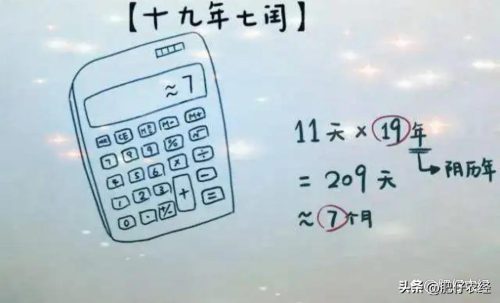 【十九年七闰】
≈7
MC CE MR M- M+
7 8 9 % √
4 5 6 × ÷
1 2 3 + −
0 · +/- =
11天×19年
阴历年
=209天
≈7个月
头条@肥仔农经